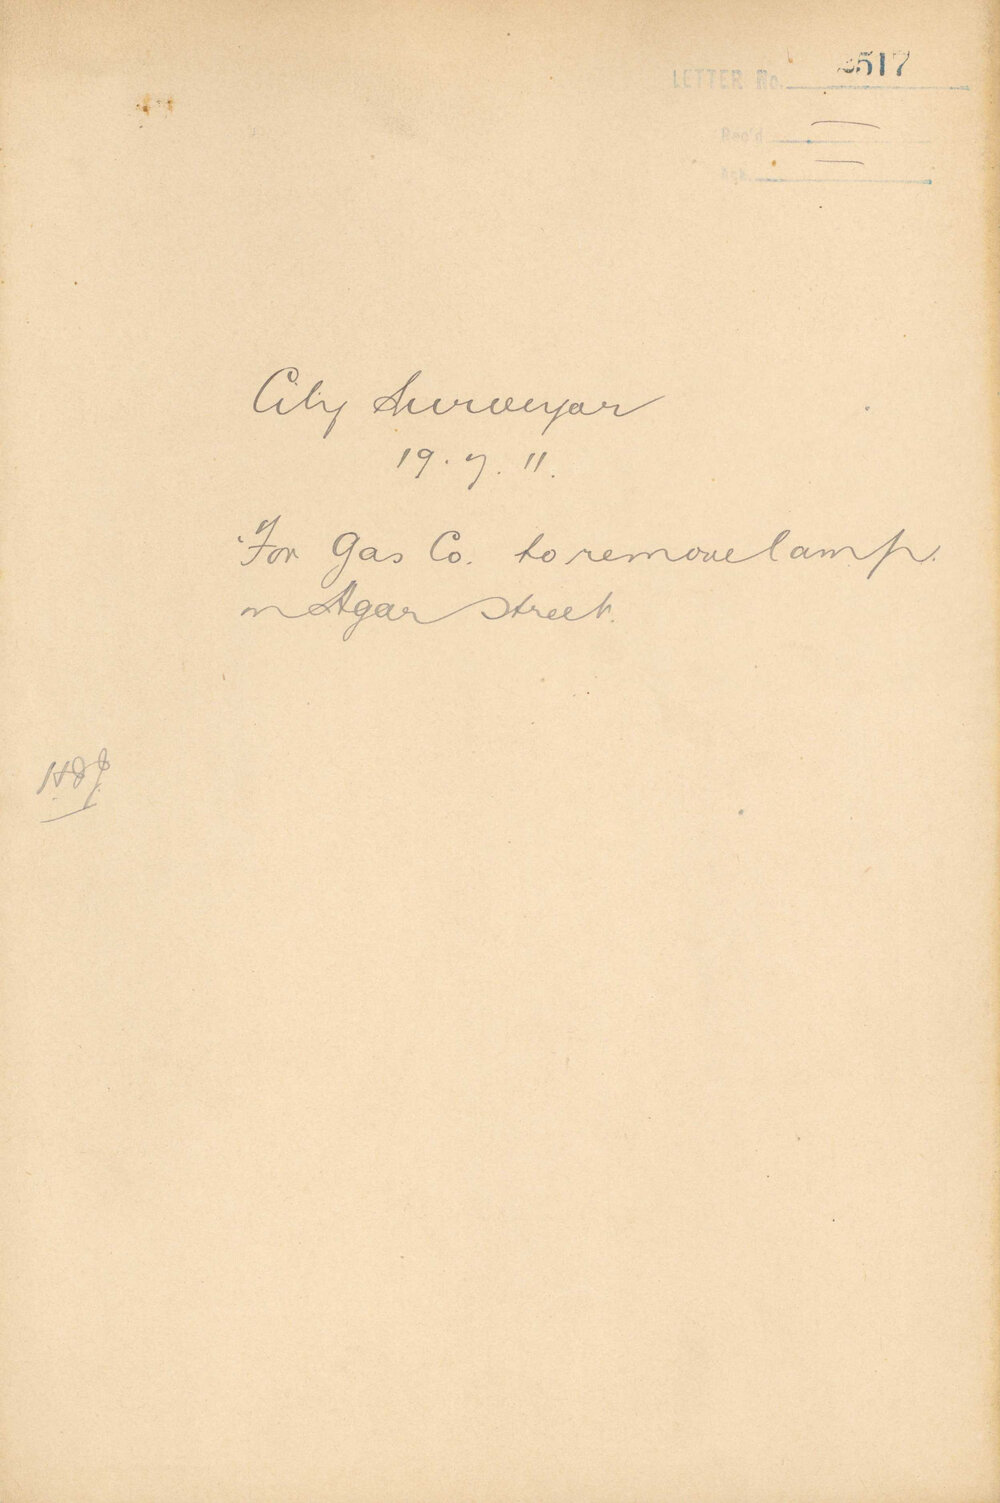 LETTER No. 517
Rec'd
Ack.
City Surveyor
19.7.11.
For Gas Co. to remove lamp.
in Agar Street.